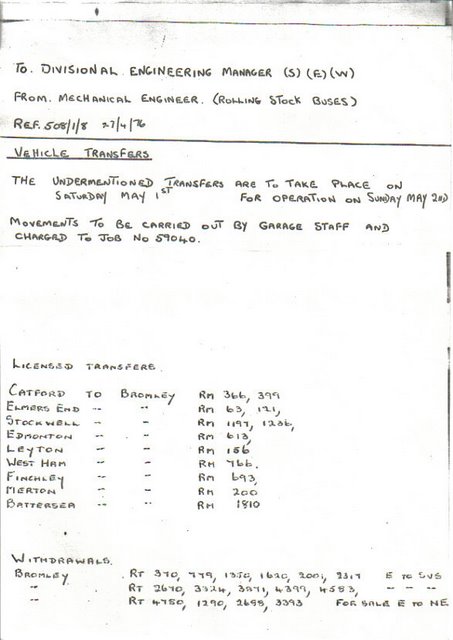 TO. DIVISIONAL ENGINEERING MANAGER (S) (E) (W)
FROM. MECHANICAL ENGINEER. (ROLLING STOCK BUSES)
REF. 508/1/8 27/4/76
VEHICLE TRANSFERS
THE UNDERMENTIONED TRANSFERS ARE TO TAKE PLACE ON
SATURDAY MAY 1ST FOR OPERATION ON SUNDAY MAY 2ND
MOVEMENTS TO BE CARRIED OUT BY GARAGE STAFF AND
CHARGED TO JOB NO 59040.
LICENSED TRANSFERS.
CATFORD TO BROMLEY RM 366, 399
ELMERS END -- -- RM 63, 121,
STOCKWELL -- -- RM 1197, 1236,
EDMONTON -- -- RM 613,
LEYTON -- -- RM 156
WEST HAM -- -- RM 766.
FINCHLEY -- -- RM 693,
MERTON -- -- RM 200
BATTERSEA -- -- RM 1810
WITHDRAWALS.
BROMLEY RT 370, 779, 1350, 1620, 2001, 2317 E TO SVS
-- RT 2670, 3324, 3971, 4399, 4583, -- -- --
-- RT 4750, 1290, 2698, 3393 FOR SALE E TO NE